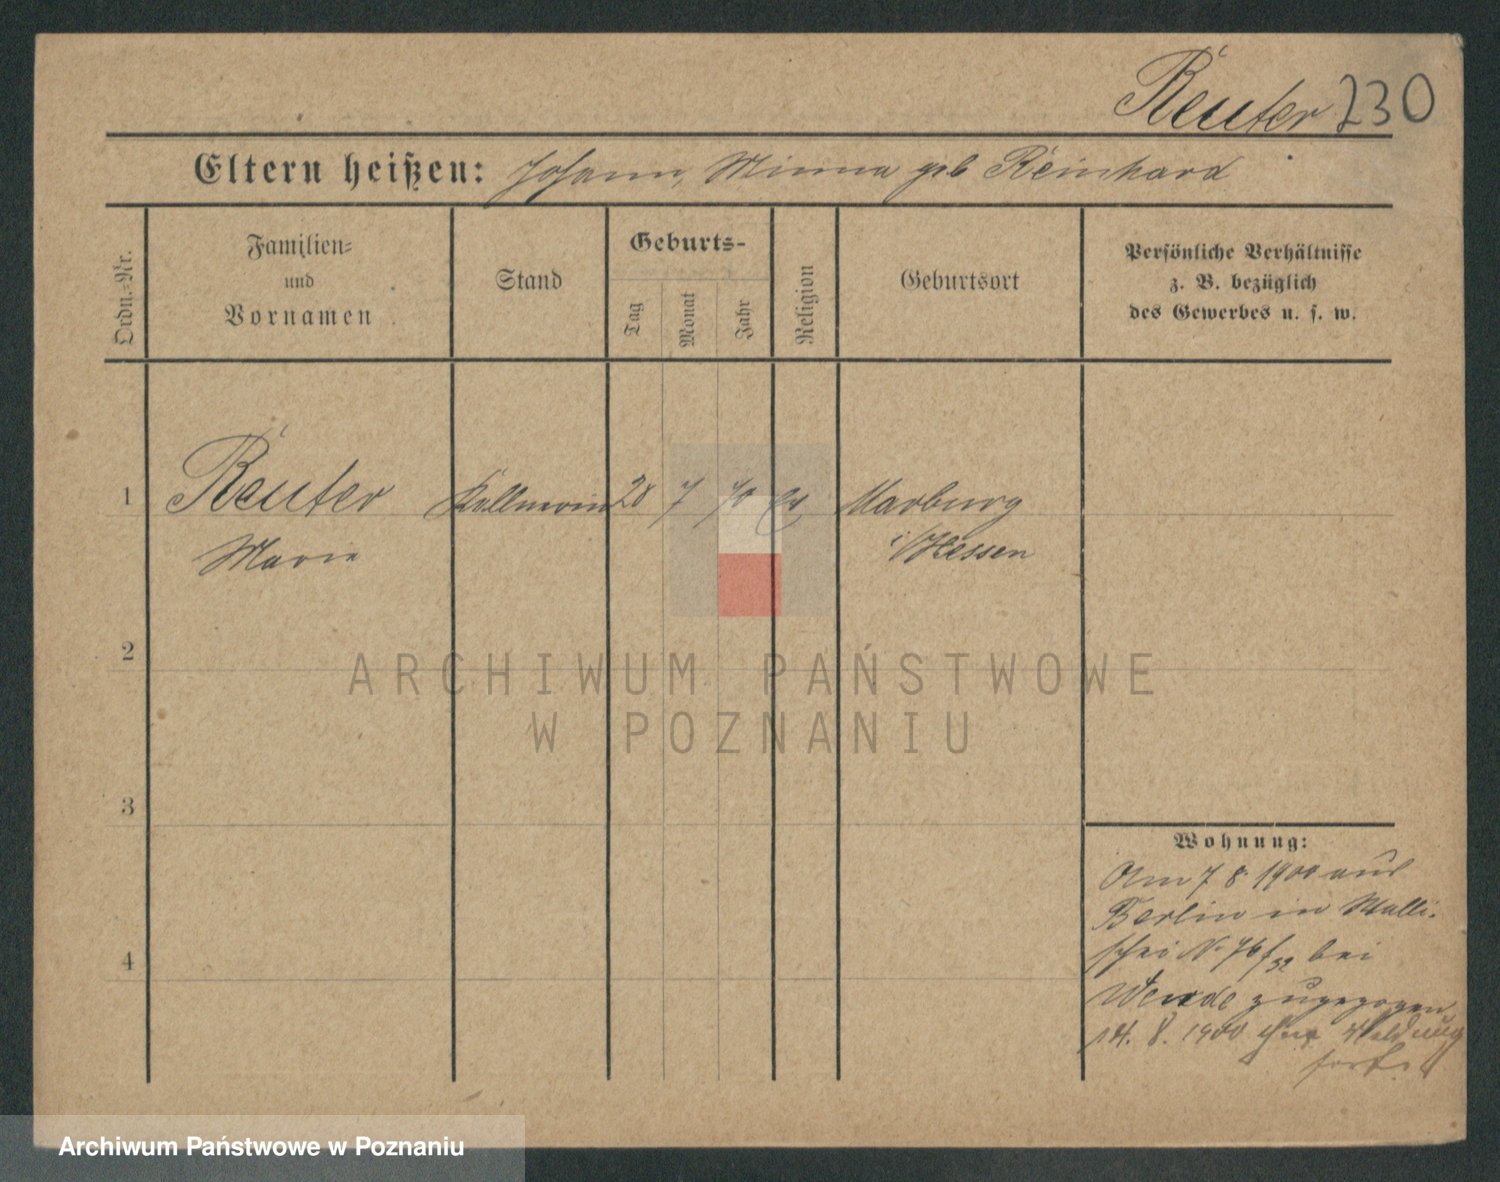 Reuter 230
Eltern heißen: Johann, Minna geb Reinhard
Ordn.-Nr.
Familien=
und
Vornamen
Stand
Geburts-
Tag
Monat
Jahr
Religion
Geburtsort
Persönliche Verhältnisse
z. B. bezüglich
des Gewerbes u. s. w.
1 Reuter Kellnerin 28 7 70 Ev Marburg
Marie i/Hessen
2
ARCHIWUM PAŃSTWOWE
W POZNANIU
3
Wohnung:
Am 7 8 1900 aus
Berlin in Malli-
schei No 76/32 bei
4
Wende zugezogen
14. 8. 1900 ohne Meldung
fort.
Archiwum Państwowe w Poznaniu